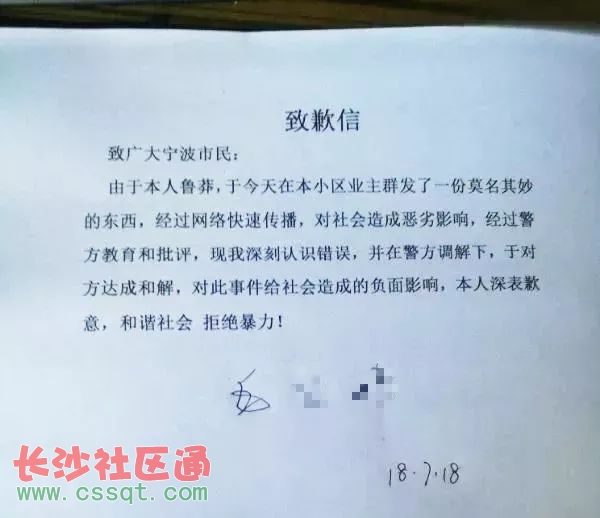 致歉信
致广大宁波市民：
由于本人鲁莽，于今天在本小区业主群发了一份莫名其妙
的东西，经过网络快速传播，对社会造成恶劣影响，经过警
方教育和批评，现我深刻认识错误，并在警方调解下，于对
方达成和解，对此事件给社会造成的负面影响，本人深表歉
意，和谐社会 拒绝暴力！
18.7.18
长沙社区通
www.cssqt.com